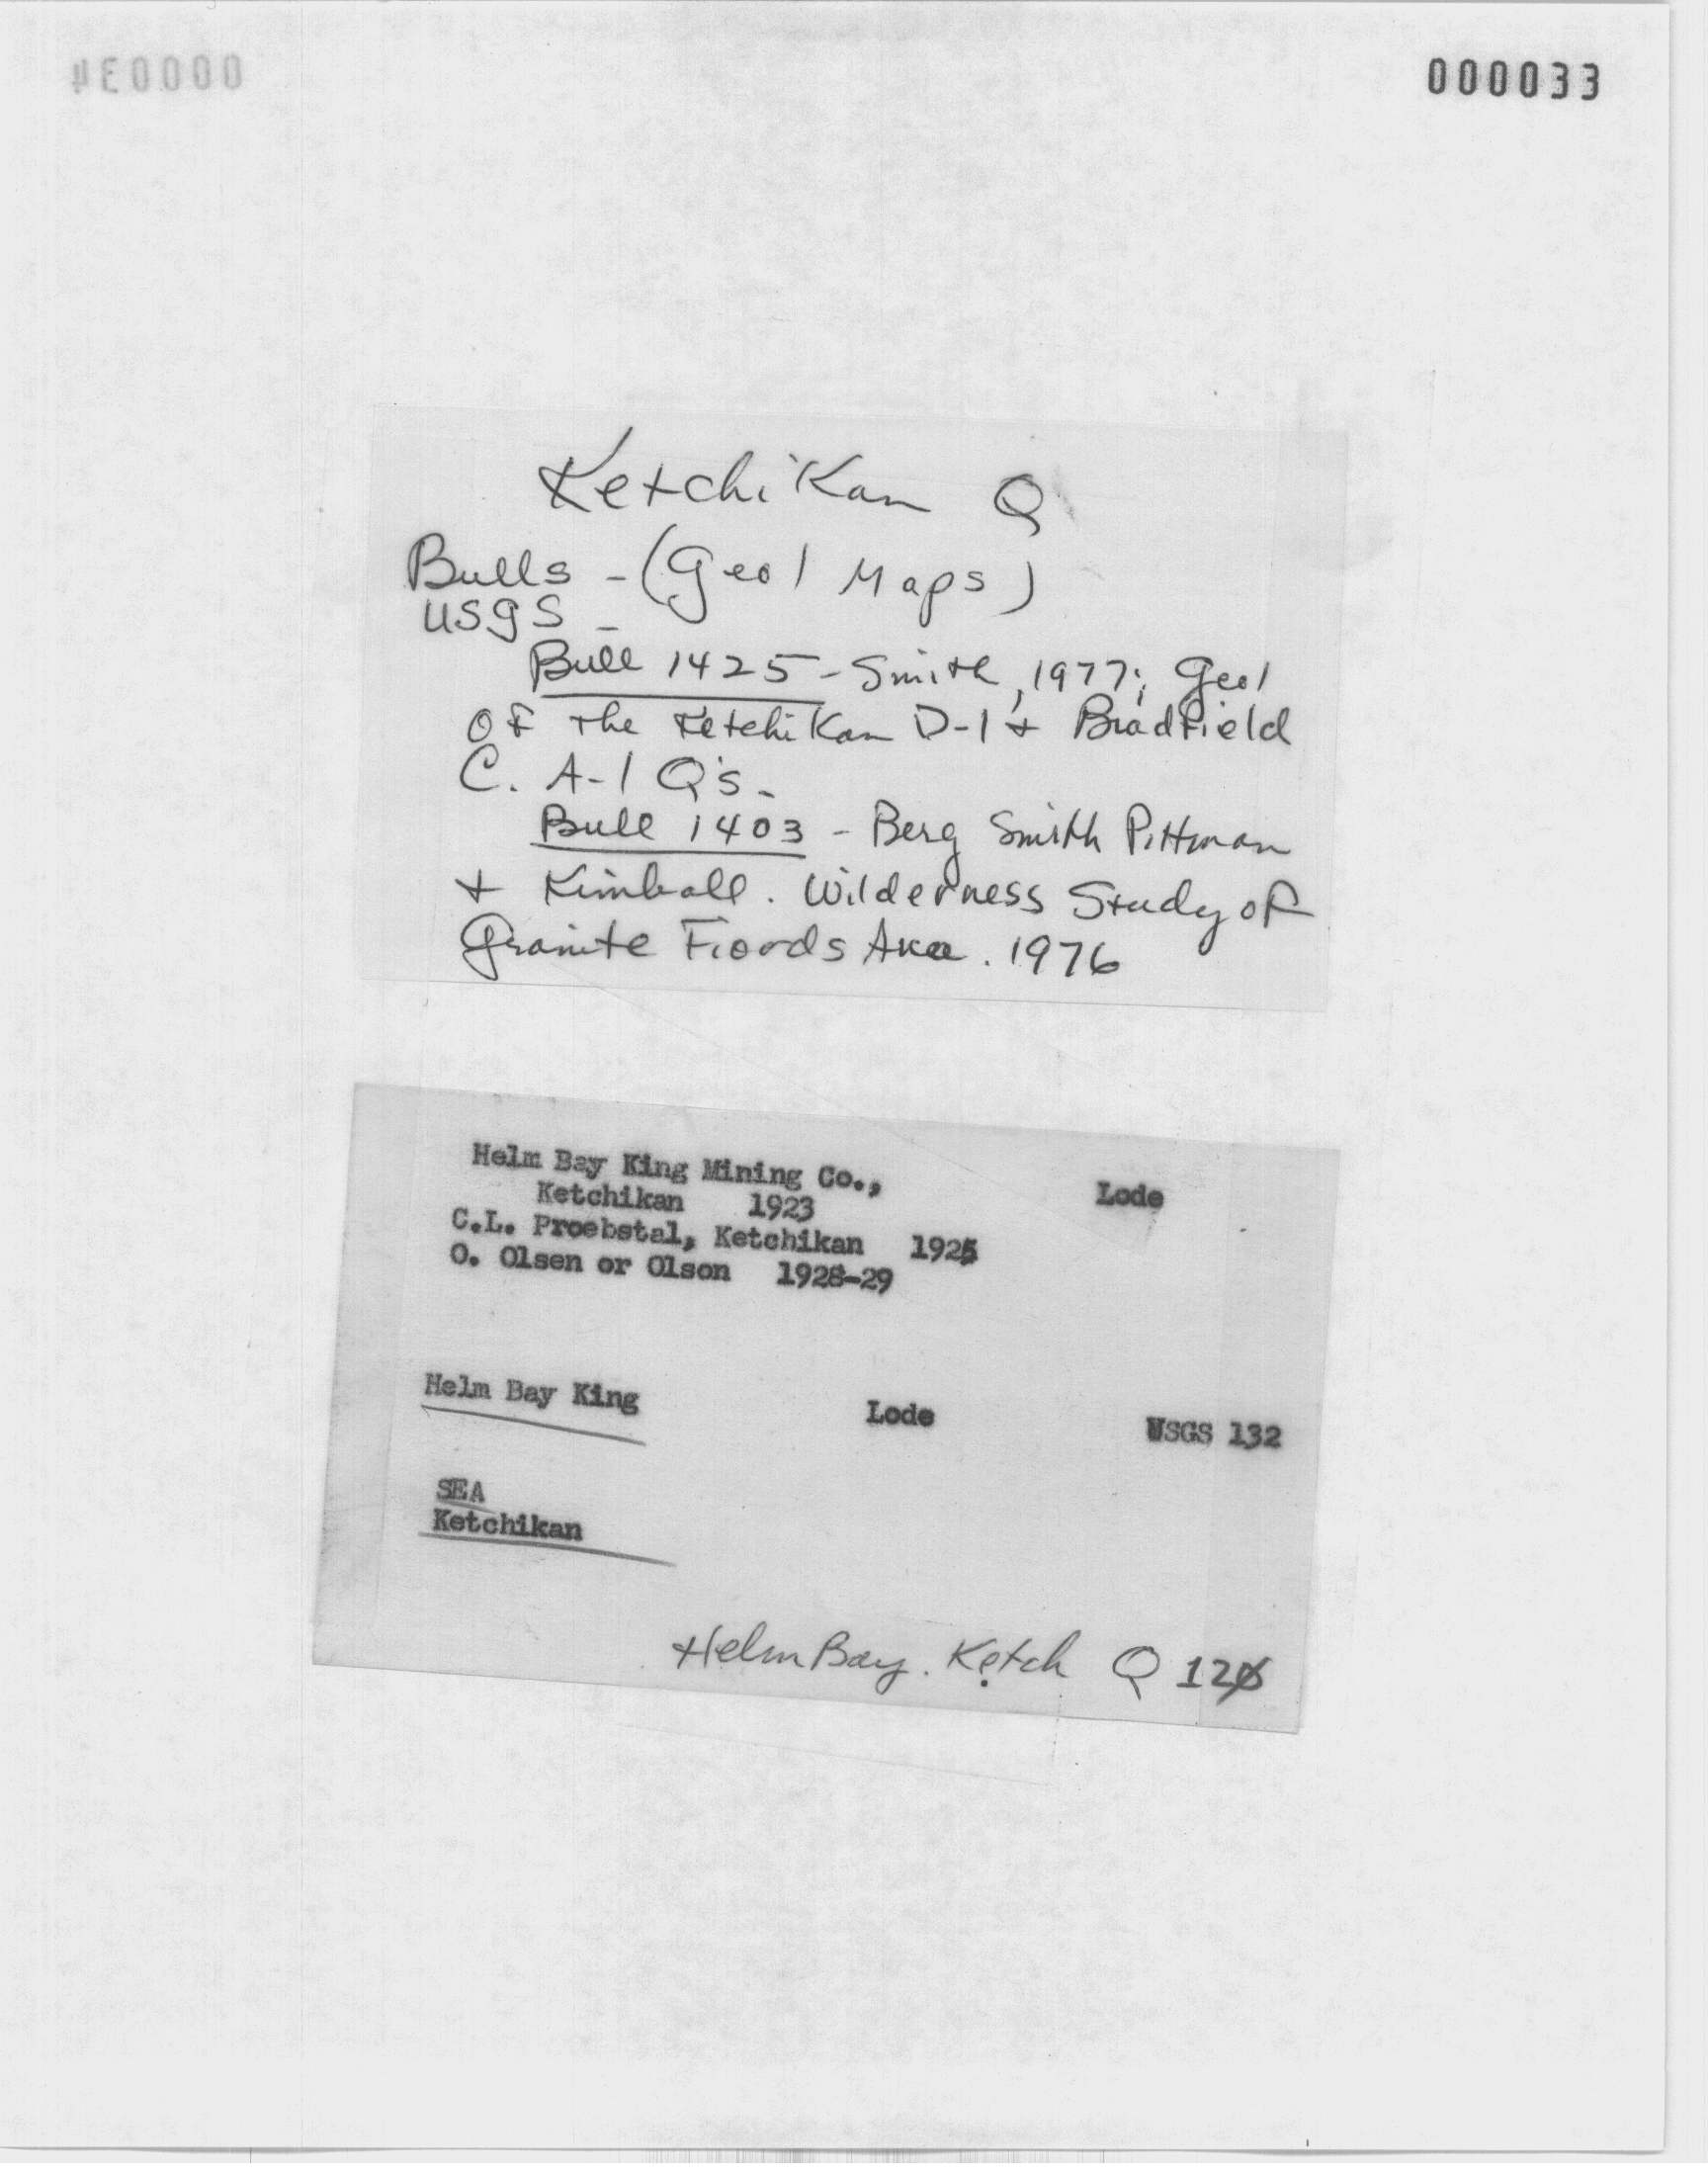 000033
Ketchikan Q
Bulls - (Geol Maps)
USGS -
Bull 1425 - Smith, 1977; Geol
of the Ketchikan D-1 + Bradfield
C. A-1 Q's.
Bull 1403 - Berg Smith Pittman
+ Kimball. Wilderness Study of
Granite Fiords Area. 1976
Helm Bay King Mining Co., Lode
Ketchikan 1923
C.L. Proebstal, Ketchikan 1925
O. Olsen or Olson 1928-29
Helm Bay King Lode USGS 132
SEA
Ketchikan
Helm Bay. Ketch Q 120